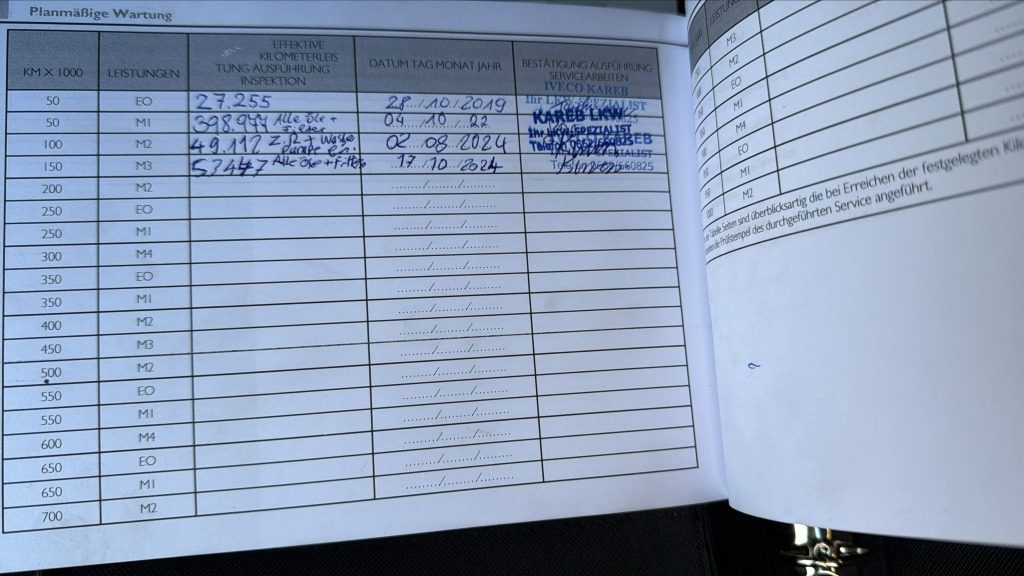 Planmäßige Wartung
KM X 1000 LEISTUNGEN EFFEKTIVE KILOMETERLEIS TUNG AUSFÜHRUNG INSPEKTION DATUM TAG MONAT JAHR BESTÄTIGUNG AUSFÜHRUNG SERVICEARBEITEN
IVECO KAREB
50 EO 27.255 28/10/2019 Ihr LKW-SPEZIALIST
50 M1 Alle Öle + 04 10 22 KAREB LKW
Ihr LKW-SPEZIALIST
100 M2 49.112 02 08 2024
150 M3 Alle Öle + Filter 17 10 2024
200 M2 ......./......./.......
250 EO ......./......./.......
250 M1 ......./......./.......
300 M4 ......./......./.......
350 EO ......./......./.......
350 M1 ......./......./.......
400 M2 ......./......./.......
450 M3 ......./......./.......
500 M2 ......./......./.......
550 EO ......./......./.......
550 M1 ......./......./.......
600 M4 ......./......./.......
650 EO ......./......./.......
650 M1 ......./......./.......
700 M2
M3
M2
EO
M1
M4
EO
M1
M2
Tabelle Seiten sind überblicksartig die bei Erreichen der festgelegten
die Prüfstempel des durchgeführten Service angeführt.